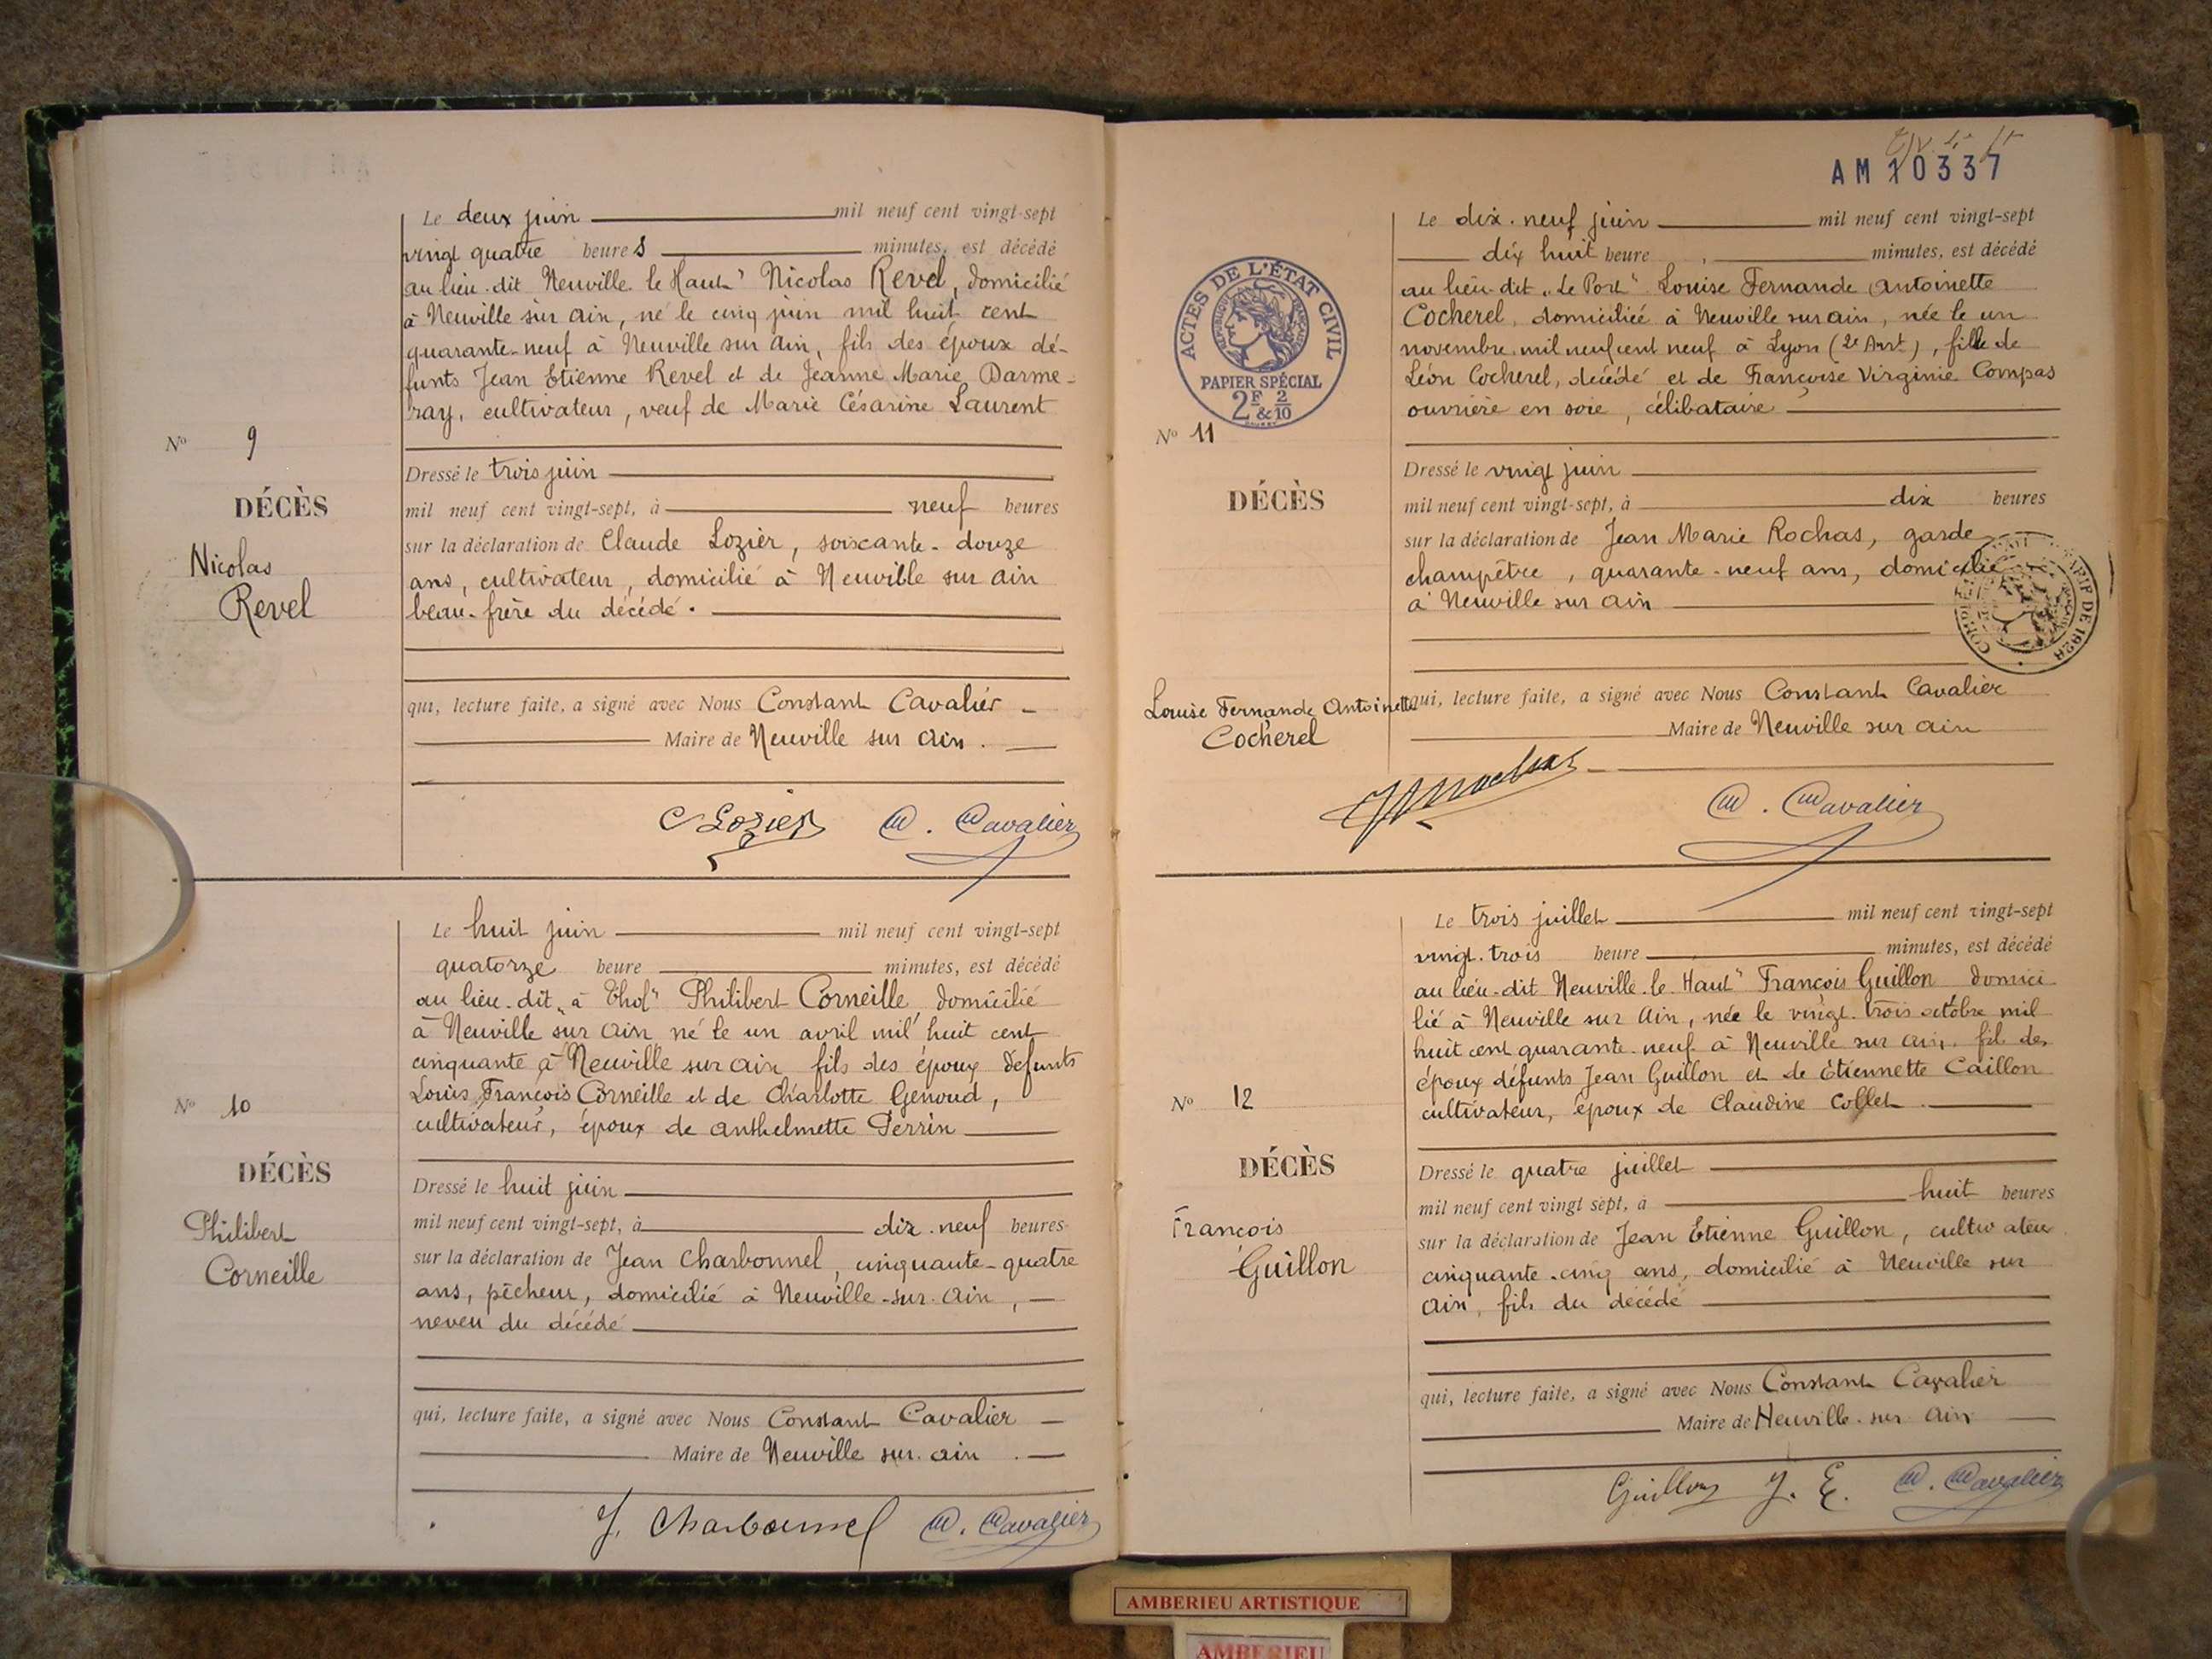 Le deux juin mil neuf cent vingt-sept
vingt quatre heures minutes, est décédé
au lieu-dit Neuville le Haut" Nicolas Revel, domicilié
à Neuville sur Ain, né le cinq juin mil huit cent
quarante-neuf à Neuville sur Ain, fils des époux dé-
funts Jean Etienne Revel et de Jeanne Marie Darme-
ray, cultivateur, veuf de Marie Césarine Laurent
N° 9
DÉCÈS
Nicolas
Revel
Dressé le trois juin
mil neuf cent vingt-sept, à neuf heures
sur la déclaration de Claude Lozier, soixante-douze
ans, cultivateur, domicilié à Neuville sur Ain
beau-frère du décédé.
qui, lecture faite, a signé avec Nous Constant Cavalier
Maire de Neuville sur Ain.
C Lozier C. Cavalier
Le huit juin mil neuf cent vingt-sept
quatorze heure minutes, est décédé
au lieu-dit „à Thol" Philibert Corneille, domicilié
à Neuville sur Ain né le un avril mil huit cent
cinquante à Neuville sur Ain fils des époux défunts
Louis François Corneille et de Charlotte Genoud,
cultivateur, époux de Anthelmette Perrin
N° 10
DÉCÈS
Philibert
Corneille
Dressé le huit juin
mil neuf cent vingt-sept, à dix-neuf heures
sur la déclaration de Jean Charbonnel, cinquante-quatre
ans, pêcheur, domicilié à Neuville-sur-Ain,
neveu du décédé
qui, lecture faite, a signé avec Nous Constant Cavalier
Maire de Neuville sur Ain.
J. Charbonnel C. Cavalier
AM 10337
ACTES DE L'ÉTAT CIVIL
PAPIER SPÉCIAL
2F & 2/10
Le dix-neuf juin mil neuf cent vingt-sept
dix huit heure minutes, est décédé
au lieu-dit „Le Port" Louise Fernande Antoinette
Cocherel, domiciliée à Neuville sur Ain, née le un
novembre mil neuf cent neuf à Lyon (2e Arrt), fille de
Léon Cocherel, décédé et de Françoise Virginie Compas
ouvrière en soie, célibataire
N° 11
DÉCÈS
Louise Fernande Antoinette
Cocherel
Dressé le vingt juin
mil neuf cent vingt-sept, à dix heures
sur la déclaration de Jean Marie Rochas, garde
champêtre, quarante-neuf ans, domicilié
à Neuville sur Ain
DE 1928
qui, lecture faite, a signé avec Nous Constant Cavalier
Maire de Neuville sur Ain
C. Cavalier
Le trois juillet mil neuf cent vingt-sept
vingt-trois heure minutes, est décédé
au lieu-dit Neuville-le-Haut" François Guillon domici
lié à Neuville sur Ain, née le vingt-trois octobre mil
huit cent quarante-neuf à Neuville sur Ain, fils des
époux défunts Jean Guillon et de Etiennette Caillon
cultivateur, époux de Claudine Collet
N° 12
DÉCÈS
François
Guillon
Dressé le quatre juillet
mil neuf cent vingt sept, à huit heures
sur la déclaration de Jean Etienne Guillon, cultivateur
cinquante-cinq ans, domicilié à Neuville sur
Ain, fils du décédé
qui, lecture faite, a signé avec Nous Constant Cavalier
Maire de Neuville-sur-Ain
Guillon J. E. C. Cavalier
AMBERIEU ARTISTIQUE
AMBERIEU